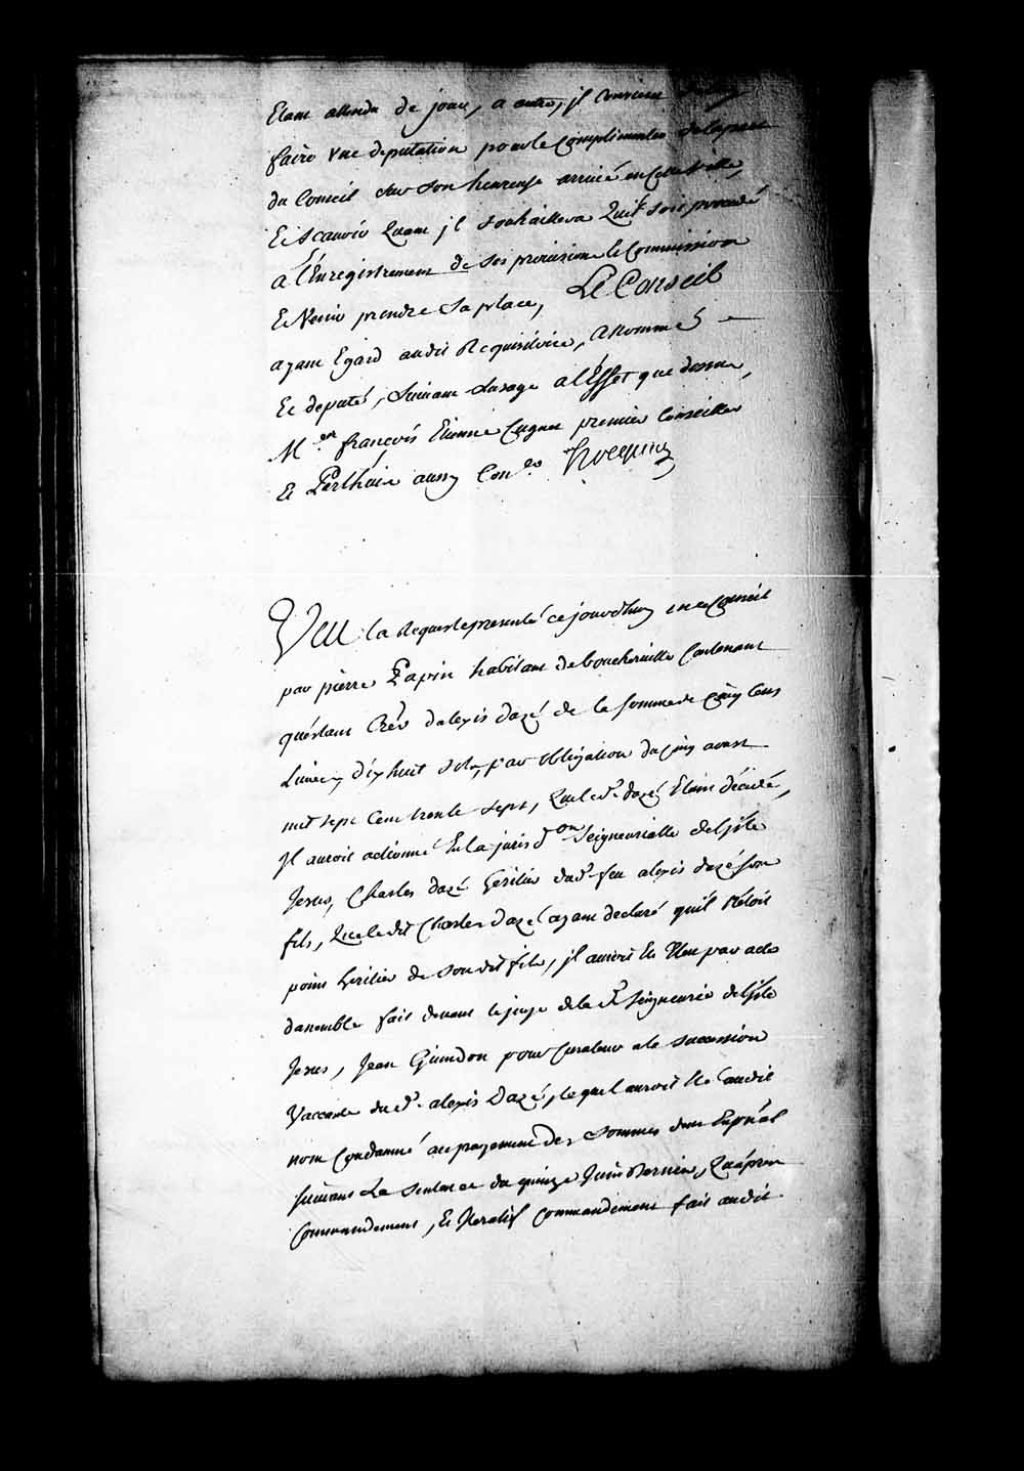 Etant attendu de jour, a autre, jl Convient
faire une deputation pour le Complimenter de la part
du Conseil sur son heureuse arrivée en Cette Ville,
Et scavoir Quant jl souhaittera Quil soit procedé
a l'Enregistrement de ses provisions le Commission
Et Venir prendre sa place, Le Conseil
ayant Egard audit Requisitoire, a Nommé
Et deputé, suivant l'usage a l'Effet que dessus,
M.en françois Etienne Cugnet premier Conseiller
Et Perthuis aussy Con.er Hocquart
Veu la Requeste presentée ce jourdhuy en ce Conseil
par pierre Papin habitant de boucherville Contenant
quéstant Créer d'alexis dazé de la somme de Cinq Cens
Livres dix huit sols, par obligation du Cinq avril
mil sept Cent trente sept, Que led.t dazé Etant décédé,
Jl auroit actionné En la jurisd.on Seigneurialle de L'jsle
Jesus, Charles dazé heritier dud.t feu alexis dazé son
fils, Que ledit Charles dazé ayant declaré quil n'étoit
point heritier de son dit fils, jl auroit Eté Eleu par acte
d'assemblée fait devant le juge de la d.te Seigneurie de L'jsle
Jesus, Jean Guindon pour Curateur a la succession
Vaccante du d.t alexis Dazé, lequel auroit Eté audit
nom Condamné au payement des sommes En pñal
suivant La sentence du quinze Juin dernier, Qu'aprés
Commandement, Et Jteratif Commandement fait audit